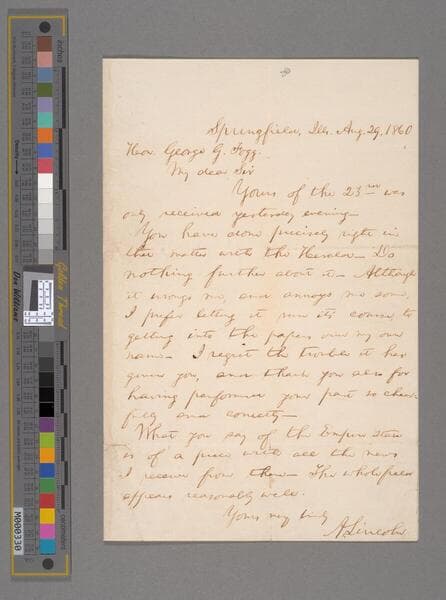 Springfield, Ills. Aug. 29, 1860
Hon. George G. Fogg.
My dear Sir
Yours of the 23rd was
only received yesterday evening—
You have done precisely right in
that matter with the Herald— Do
nothing further about it— Although
it wrongs me, and annoys me some,
I prefer letting it run its course, to
getting into the papers over my own
name— I regret the trouble it has
given you, and thank you also for
having performed your part so cheer-
fully and correctly—
What you say of the Empire state
is of a piece with all the news
I receive from there— The whole field
appears reasonably well.
Yours very truly
A. Lincoln
inches
Golden Thread
centimeters
M000330